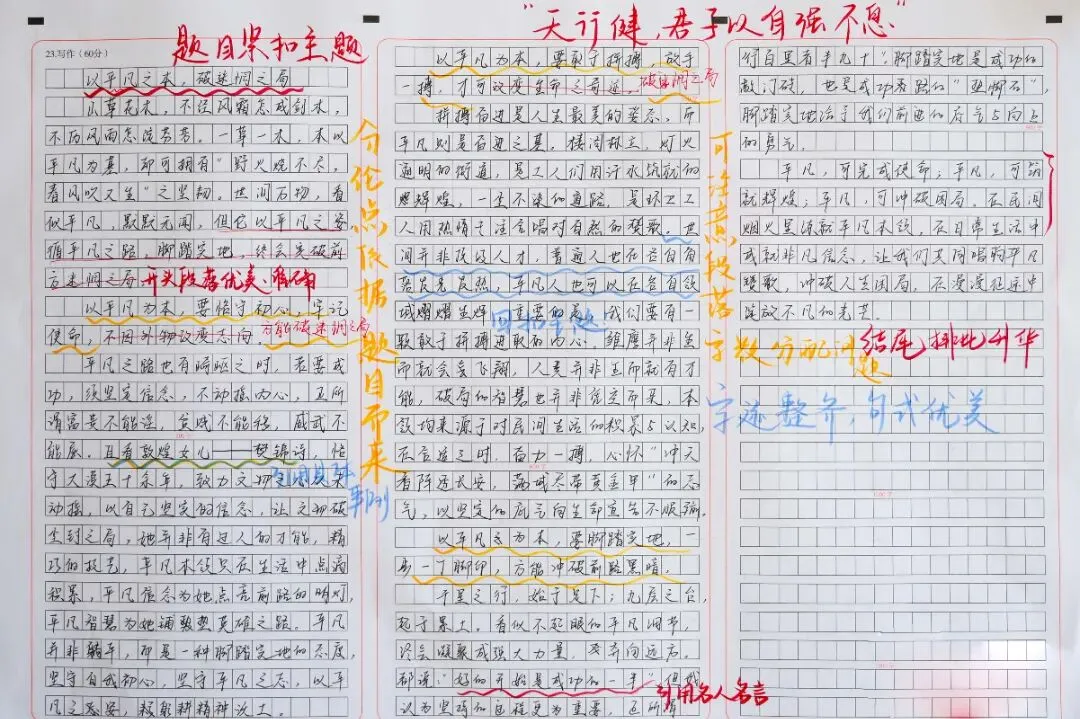 "天行健，君子以自强不息"
题目紧扣主题
23.写作（60分）
以平凡之本，破迷惘之局
从草花木，不经风霜怎成剑木，
不历风雨怎流芬芳。一草一木，本以
平凡为基，却可拥有"野火烧不尽，
春风吹又生"之坚韧。世间万物，看
似平凡，默默无闻，但它以平凡之姿
循平凡之路，脚踏实地，终会突破前
方迷惘之局
开头段落优美、准确
以平凡为本，要恪守初心，牢记
使命，不因外物改变志向。
方能破迷惘之局
平凡之路也有晦暗之时，若要成
功，须坚定信念，不动摇内心，正所
谓富贵不能淫，贫贱不能移，威武不
能屈。且看敦煌女儿——樊锦诗，恪
守大漠五十余年，致力文物
动摇，以自己坚定的信念，让文物破
尘封之局，她并非有过人的才能，精
巧的技艺，平凡本领只在生活中点滴
积累，平凡信念为她点亮前路的明灯，
平凡智慧为她铺
英雄之路。平凡
并非躺平，而是一种脚踏实地的态度，
坚守自我初心，坚守平凡之志，以平
凡之姿态，
耕耘精神沃土。
分论点依据题目而来
以平凡为本，要敢于拼搏，放手
一搏，才可改变生命之奇迹，
破迷惘之局
拼搏奋进是人生最美的姿态，而
平凡则是奋进之基。楼阁林立，灯火
通明的街道，是工人们用汗水筑就的
辉煌，一尘不染的道路，是环卫工
人用热情与汗言唱对自然的赞歌，世
间并非没有人才，普通人也在各自有
平凡人也可以在各自领
域熠熠生辉，重要的是，我们要有一
颗敢于拼搏进取的内心，雄鹰并非生
而就会展飞翔，人类并非生而就有才
能，破局的智慧也并非凭空而来，本
领均来源于对民间生活的积累与认知，
奋力一搏，心怀"冲天
香阵透长安，满城尽带黄金甲"的志
气，以坚定的底气向生命宣告不服输。
以平凡之为本，要脚踏实地，一
步一个脚印，方能冲破前路黑暗。
千里之行，始于足下；九层之台，
起于累土。看似不起眼的平凡细节，
终会凝聚成强大力量，
奔向远方。
都说"好的开始是成功的一半"但我
认为坚持的过程更为重要，正所谓
回扣主题
引用名人名言
可注意段落字数分配问题
行百里者半九十"。脚踏实地是成功的
敲门砖，也是成功者路的"垫脚石"，
脚踏实地给予我们前进的底气与向上
的勇气。
平凡，可完成使命；平凡，可筑
就辉煌；平凡，可冲破困局。在民间
烟火里练就平凡本领，在日常生活中
成就非凡信念，让我们共同唱响平凡
赞歌，冲破人生困局，在漫漫征途中
绽放不凡的光芒。
结尾排比升华
字迹整齐，句式优美